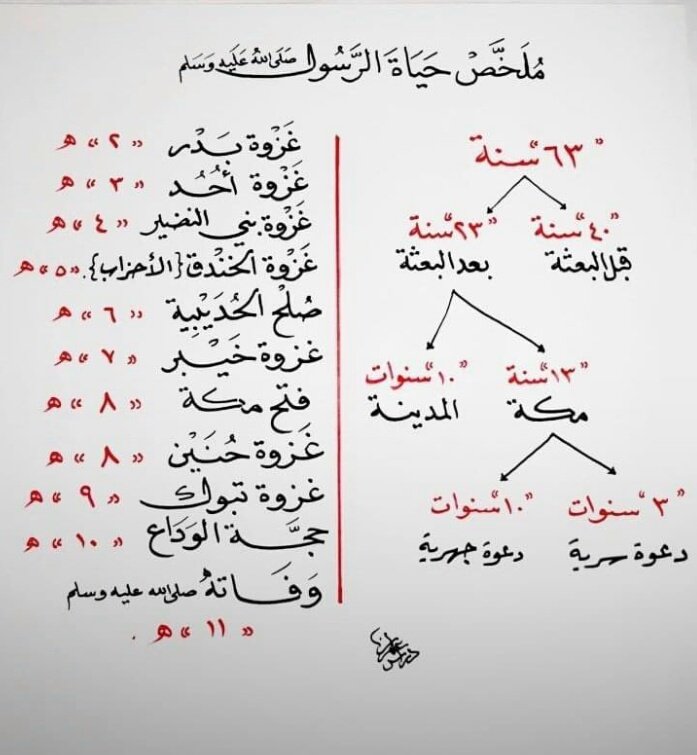 مُلَخَّصْ حَيَاةَ الرَّسُول صَلَى اللهُ عَلَيهِ وَسَلم
"٦٣" سنة
"٤٠" سنة
قبل البعثة
"٢٣" سنة
بعد البعثة
"١٣" سنة
مكة
"١٠" سنوات
المدينة
"٣" سنوات
دعوة سرية
"١٠" سنوات
دعوة جهرية
غَزْوة بَدْر "٢" هـ
غَزْوة أُحُد "٣" هـ
غَزْوة بني النضير "٤" هـ
غَزْوة الخَنْدق {الأحزاب}. "٥" هـ
صُلْح الحُدَيْبِية "٦" هـ
غزوة خَيْبر "٧" هـ
فتح مكة "٨" هـ
غَزوة حُنَيْن "٨" هـ
غزوة تبوك "٩" هـ
حجَّة الوَدَاع "١٠" هـ
وَفَاتهُ صلى الله عليه وسلم
"١١" هـ.